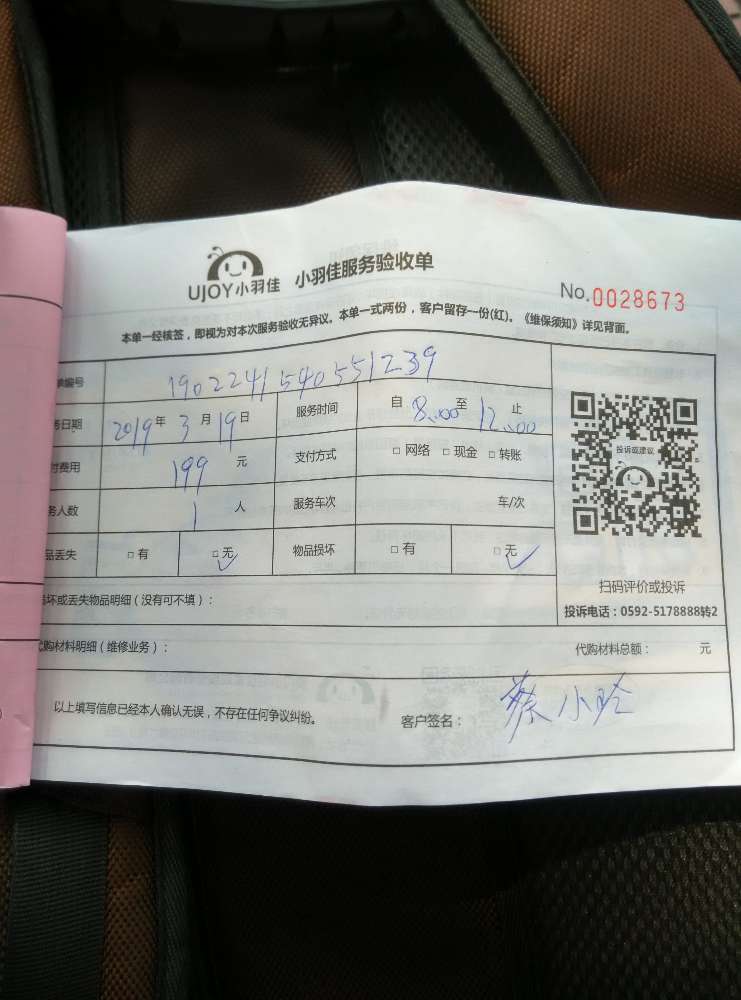 UJOY小羽佳 小羽佳服务验收单
No.0028673
本单一经核签，即视为对本次服务验收无异议。本单一式两份，客户留存一份(红)。《维保须知》详见背面。
单编号 1902241540551239
务日期 2019年3月19日 服务时间 自8:00至12:00止
付费用 199元 支付方式 □网络 □现金 □转账
务人数 1人 服务车次 车/次
品丢失 □有 □无 物品损坏 □有 □无
投诉或建议
扫码评价或投诉
投诉电话：0592-5178888转2
损坏或丢失物品明细（没有可不填）：
代购材料明细（维修业务）： 代购材料总额： 元
以上填写信息已经本人确认无误，不存在任何争议纠纷。 客户签名：蔡小玲